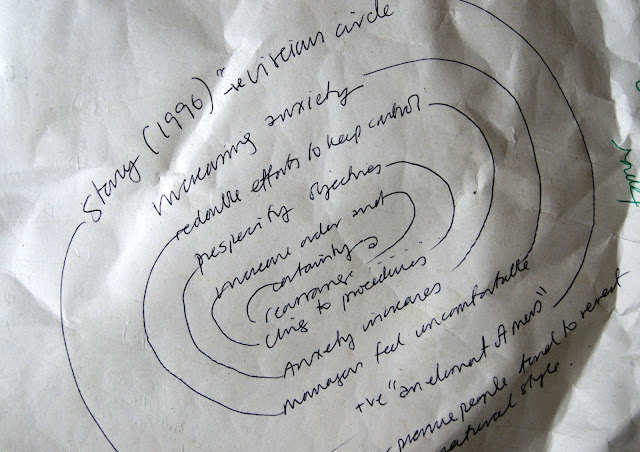 Stacy (1996) "+ve viscious circle
increasing anxiety
redouble efforts to keep control.
prespecify objectives
increase order and
certainty
rearrange
cling to procedures
Anxiety increases
managers feel uncomfortable
+ve "an element of mess"
pressure people tend to revert
natural style.